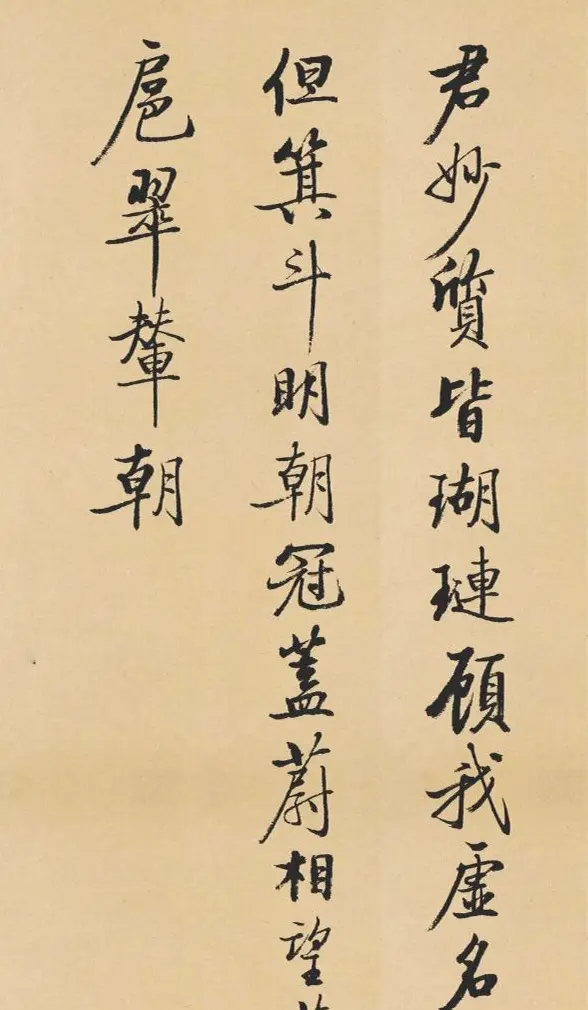 君妙質皆瑚璉顧我虛名
但箕斗明朝冠蓋蔚相望
扈翠輦朝